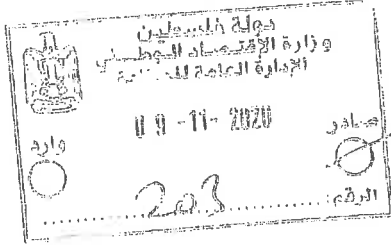 دولة فلسطين
وزارة الإقتصاد الوطني
الإدارة العامة للصناعة
09 -11- 2020
صادر
وارد
الرقم: 203